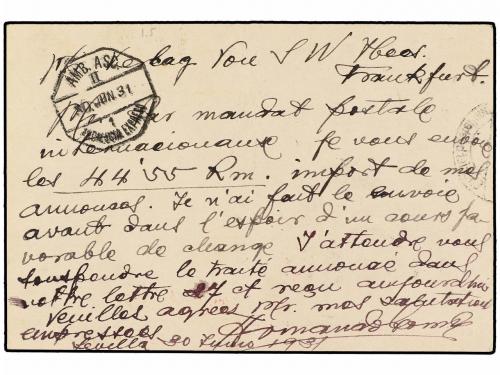 Frankfurt.
AMB. ASC.
II
JUN 31
ANDALUCIA EXPRESO
Par mandat postale
internacionaux je vous envoie
les 44'55 Rm. import de mes
annonces. Je n'ai fait le envoie
avant dans l'espoir d'un cours fa-
vorable de change. J'attendre vous
le traité annoncé dans
votre lettre 27 et reçu aujourd'hui
Veuilles agrées Mr. mes salutation
empressées
Sevilla 30 Junio 1931